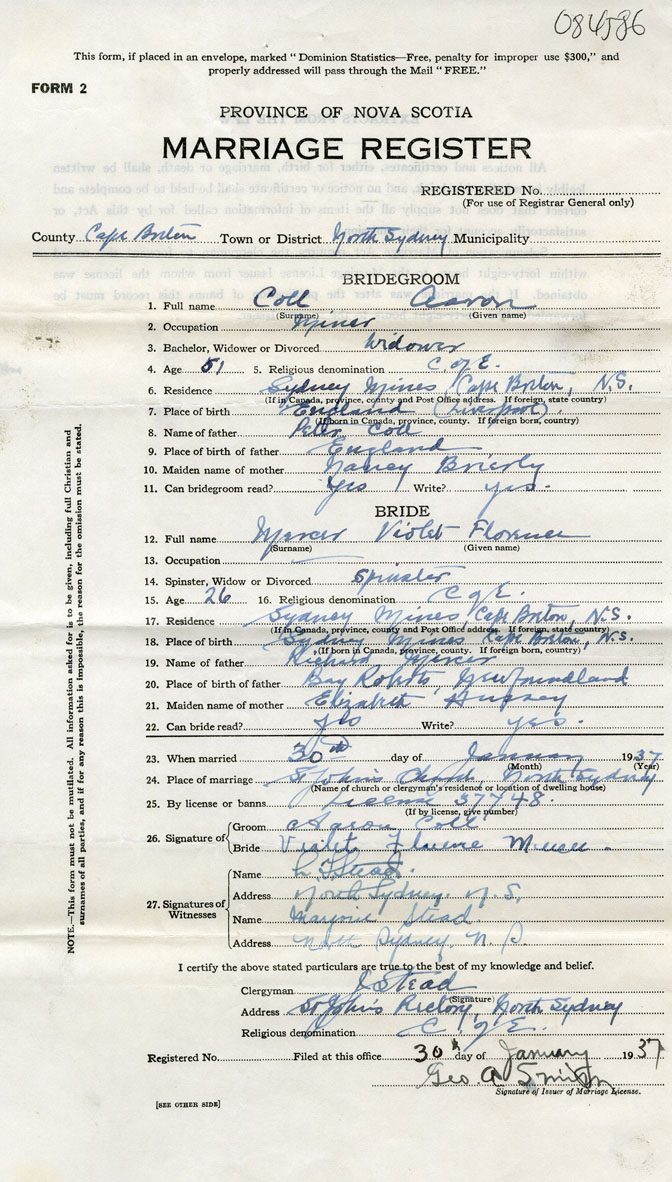 084586
This form, if placed in an envelope, marked "Dominion Statistics—Free, penalty for improper use $300," and
properly addressed will pass through the Mail "FREE."
FORM 2
PROVINCE OF NOVA SCOTIA
MARRIAGE REGISTER
REGISTERED No.
(For use of Registrar General only)
County Cape Breton Town or District North Sydney Municipality
BRIDEGROOM
1. Full name Coll Aaron
(Surname) (Given name)
2. Occupation Miner
3. Bachelor, Widower or Divorced Widower
4. Age 51 5. Religious denomination C. of E.
6. Residence Sydney Mines, Cape Breton, N.S.
(If in Canada, province, county and Post Office address. If foreign, state country)
7. Place of birth England (Liverpool)
(If born in Canada, province, county. If foreign born, country)
8. Name of father Peter Coll
9. Place of birth of father England
10. Maiden name of mother Nancy Brierly
11. Can bridegroom read? Yes Write? yes.
BRIDE
12. Full name Mercer Violet Florence
(Surname) (Given name)
13. Occupation
14. Spinster, Widow or Divorced Spinster
15. Age 26 16. Religious denomination C of E.
17. Residence Sydney Mines, Cape Breton, N.S.
(If in Canada, province, county and Post Office address. If foreign, state country)
18. Place of birth Sydney Mines, Cape Breton, N.S.
(If born in Canada, province, county. If foreign born, country)
19. Name of father Richard Mercer
20. Place of birth of father Bay Roberts, Newfoundland
21. Maiden name of mother Elizabeth
22. Can bride read? Yes Write? yes.
23. When married 30th day of January 1937
(Month) (Year)
24. Place of marriage St John's Church, North Sydney
(Name of church or clergyman's residence or location of dwelling house)
25. By license or banns License 37748.
(If by license, give number)
26. Signature of Groom Aaron Coll
Bride Violet Florence Mercer.
27. Signatures of Witnesses
Name Stead.
Address North Sydney, N.S.
Name Marjorie Stead
Address North Sydney, N.S.
I certify the above stated particulars are true to the best of my knowledge and belief.
Clergyman Stead
(Signature)
Address St John's Rectory, North Sydney
Religious denomination C of E.
Registered No. Filed at this office 30th day of January 1937
Geo. A Smith
Signature of Issuer of Marriage License.
[SEE OTHER SIDE]
NOTE.—This form must not be mutilated. All information asked for is to be given, including full Christian and
surnames of all parties, and if for any reason this is impossible, the reason for the omission must be stated.